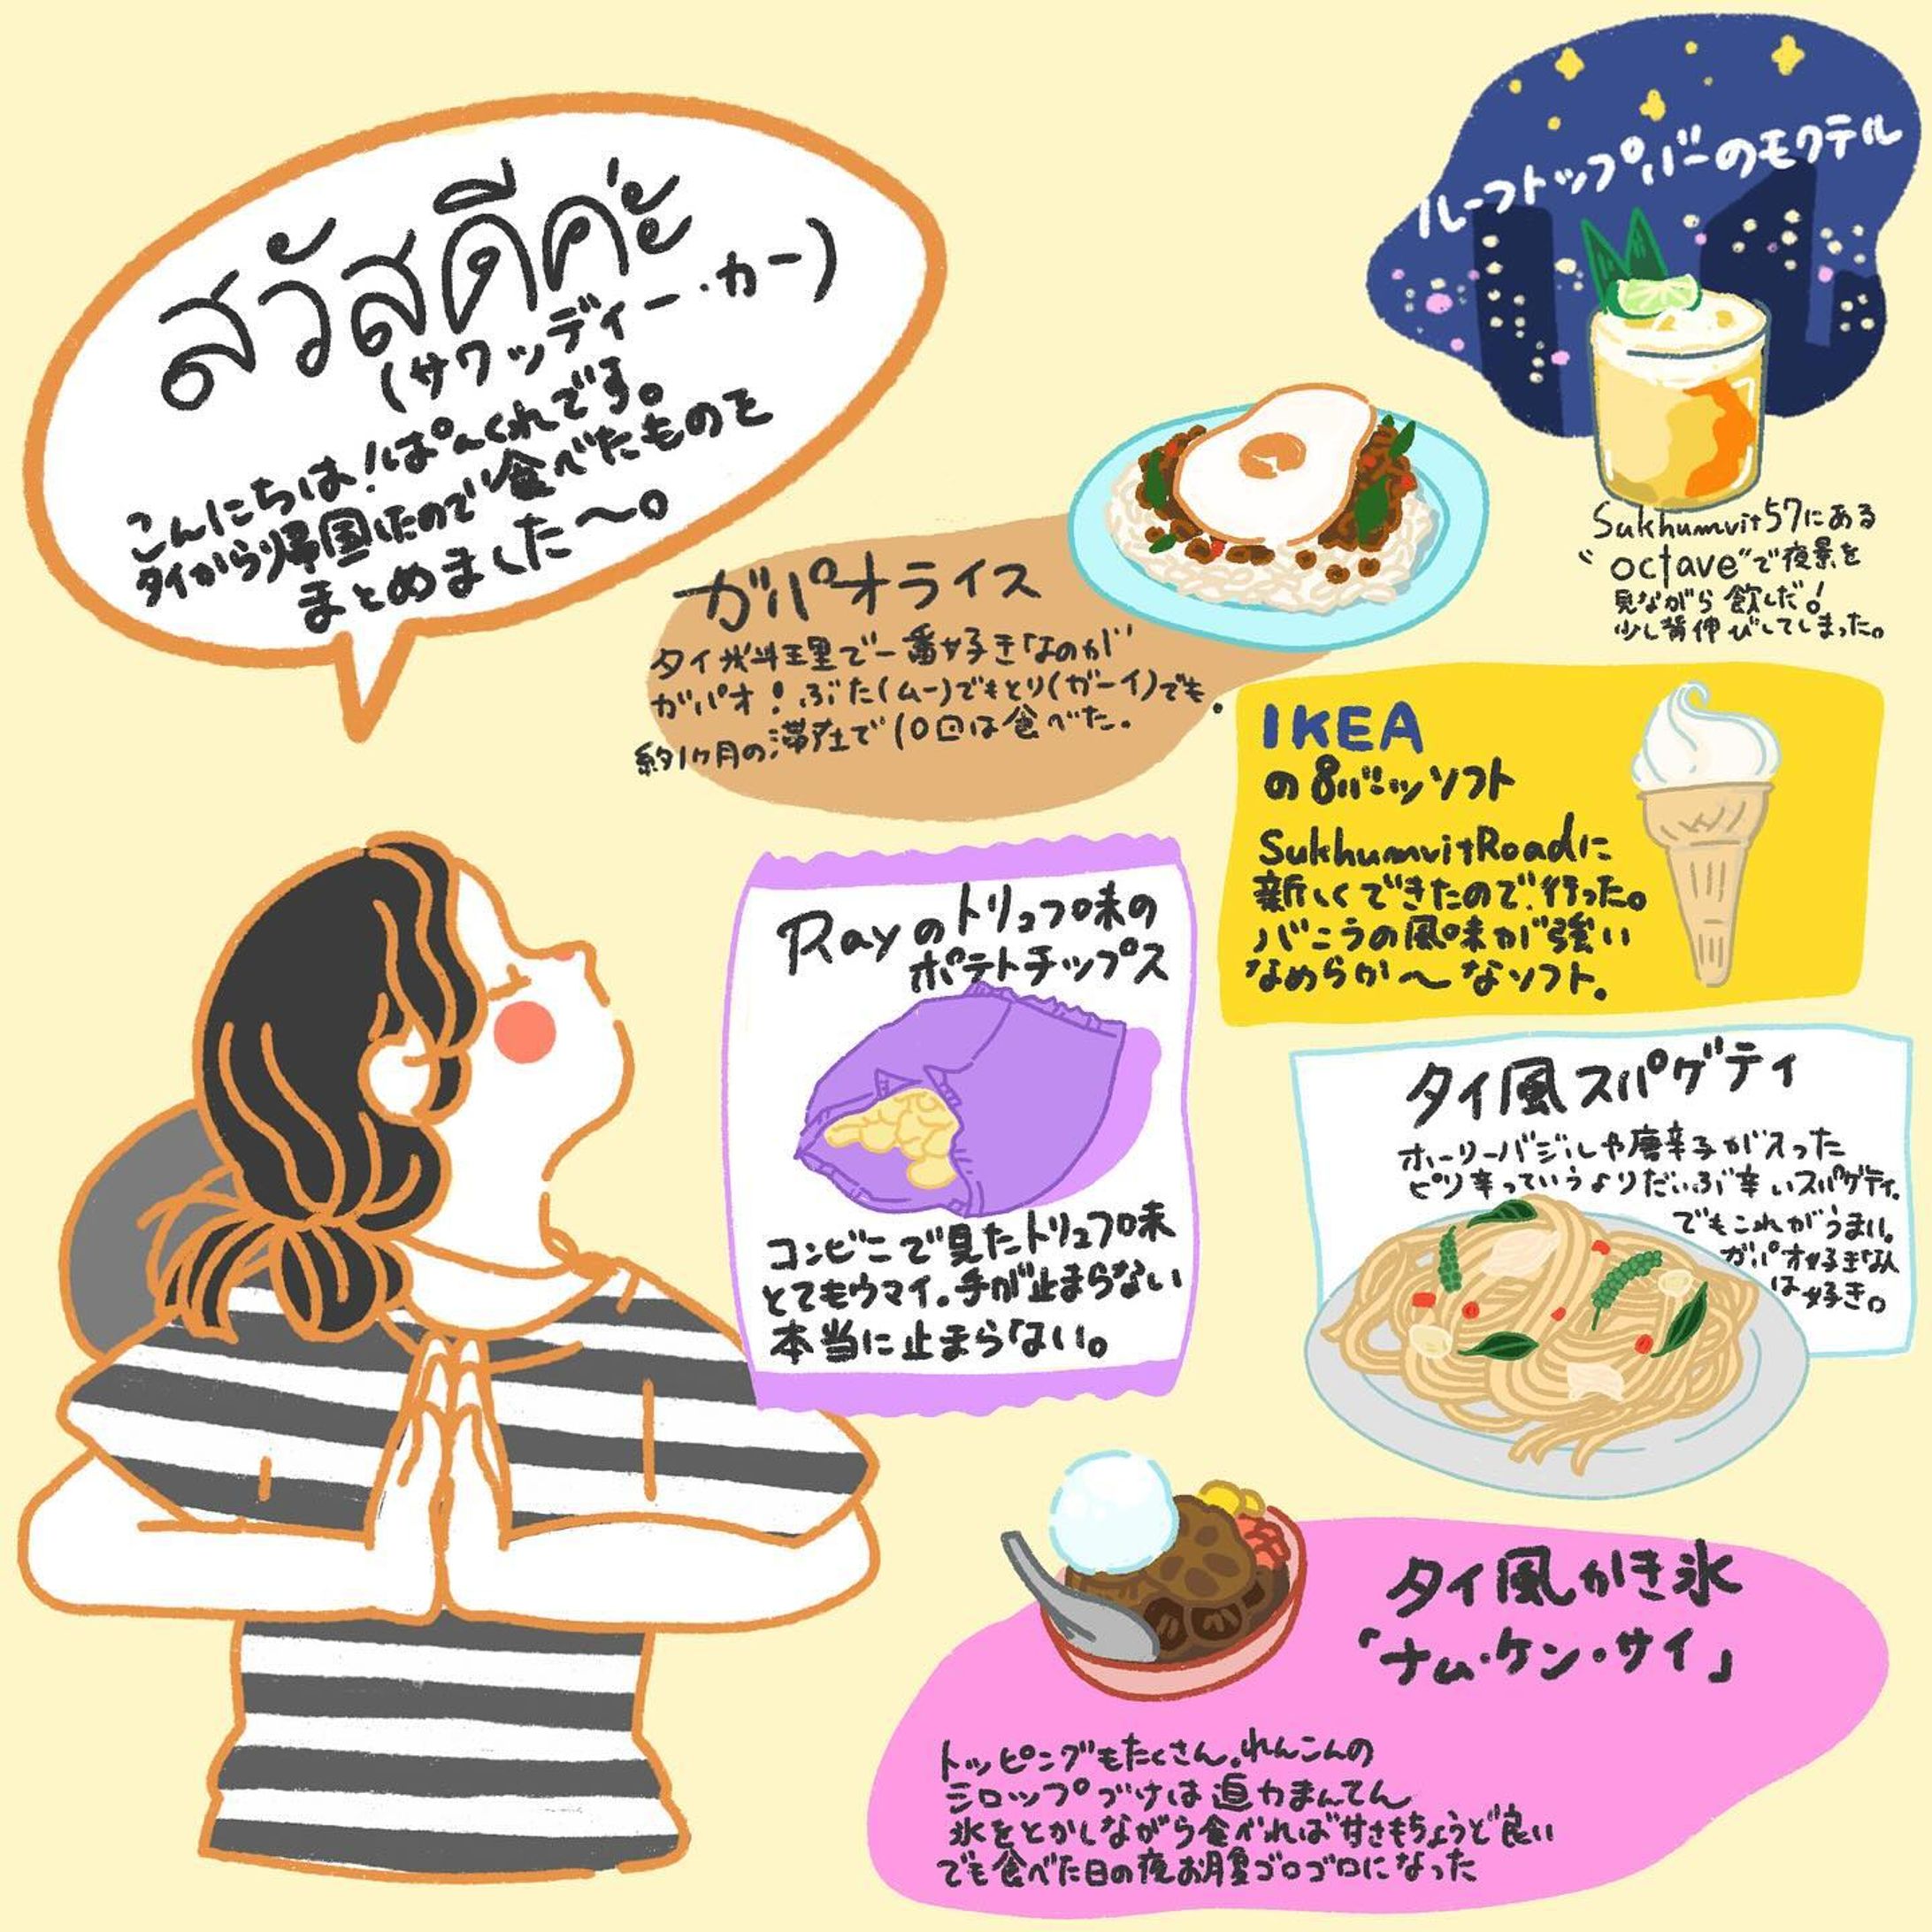 สวัสดีค่ะ
(サワッディー・カー)
こんにちは!ぱんくれです。
タイから帰国したので食べたものを
まとめました〜。
ルーフトップバーのモクテル
Sukhumvit57にある
"octave"で夜景を
見ながら飲んだ!
少し背伸びしてしまった。
ガパオライス
タイ料理で一番好きなのが
ガパオ!ぶた(ムー)でもとり(ガーイ)でも。
約1ヶ月の滞在で10回は食べた。
IKEA
の8バーツソフト
SukhumvitRoadに
新しくできたので行った。
バニラの風味が強い
なめらか〜なソフト。
Rayのトリュフ味の
ポテトチップス
コンビニで見たトリュフ味
とてもウマイ。手が止まらない
本当に止まらない。
タイ風スパゲティ
ホーリーバジルや唐辛子が入った
ピリ辛っていうよりだいぶ辛いスパゲティ。
でもこれがうまい。
ガパオ好きな人
は好き。
タイ風かき氷
「ナム・ケン・サイ」
トッピングもたくさん。れんこんの
シロップづけは迫力まんてん
氷をとかしながら食べれば甘さもちょうど良い
でも食べた日の夜お腹ゴロゴロになった